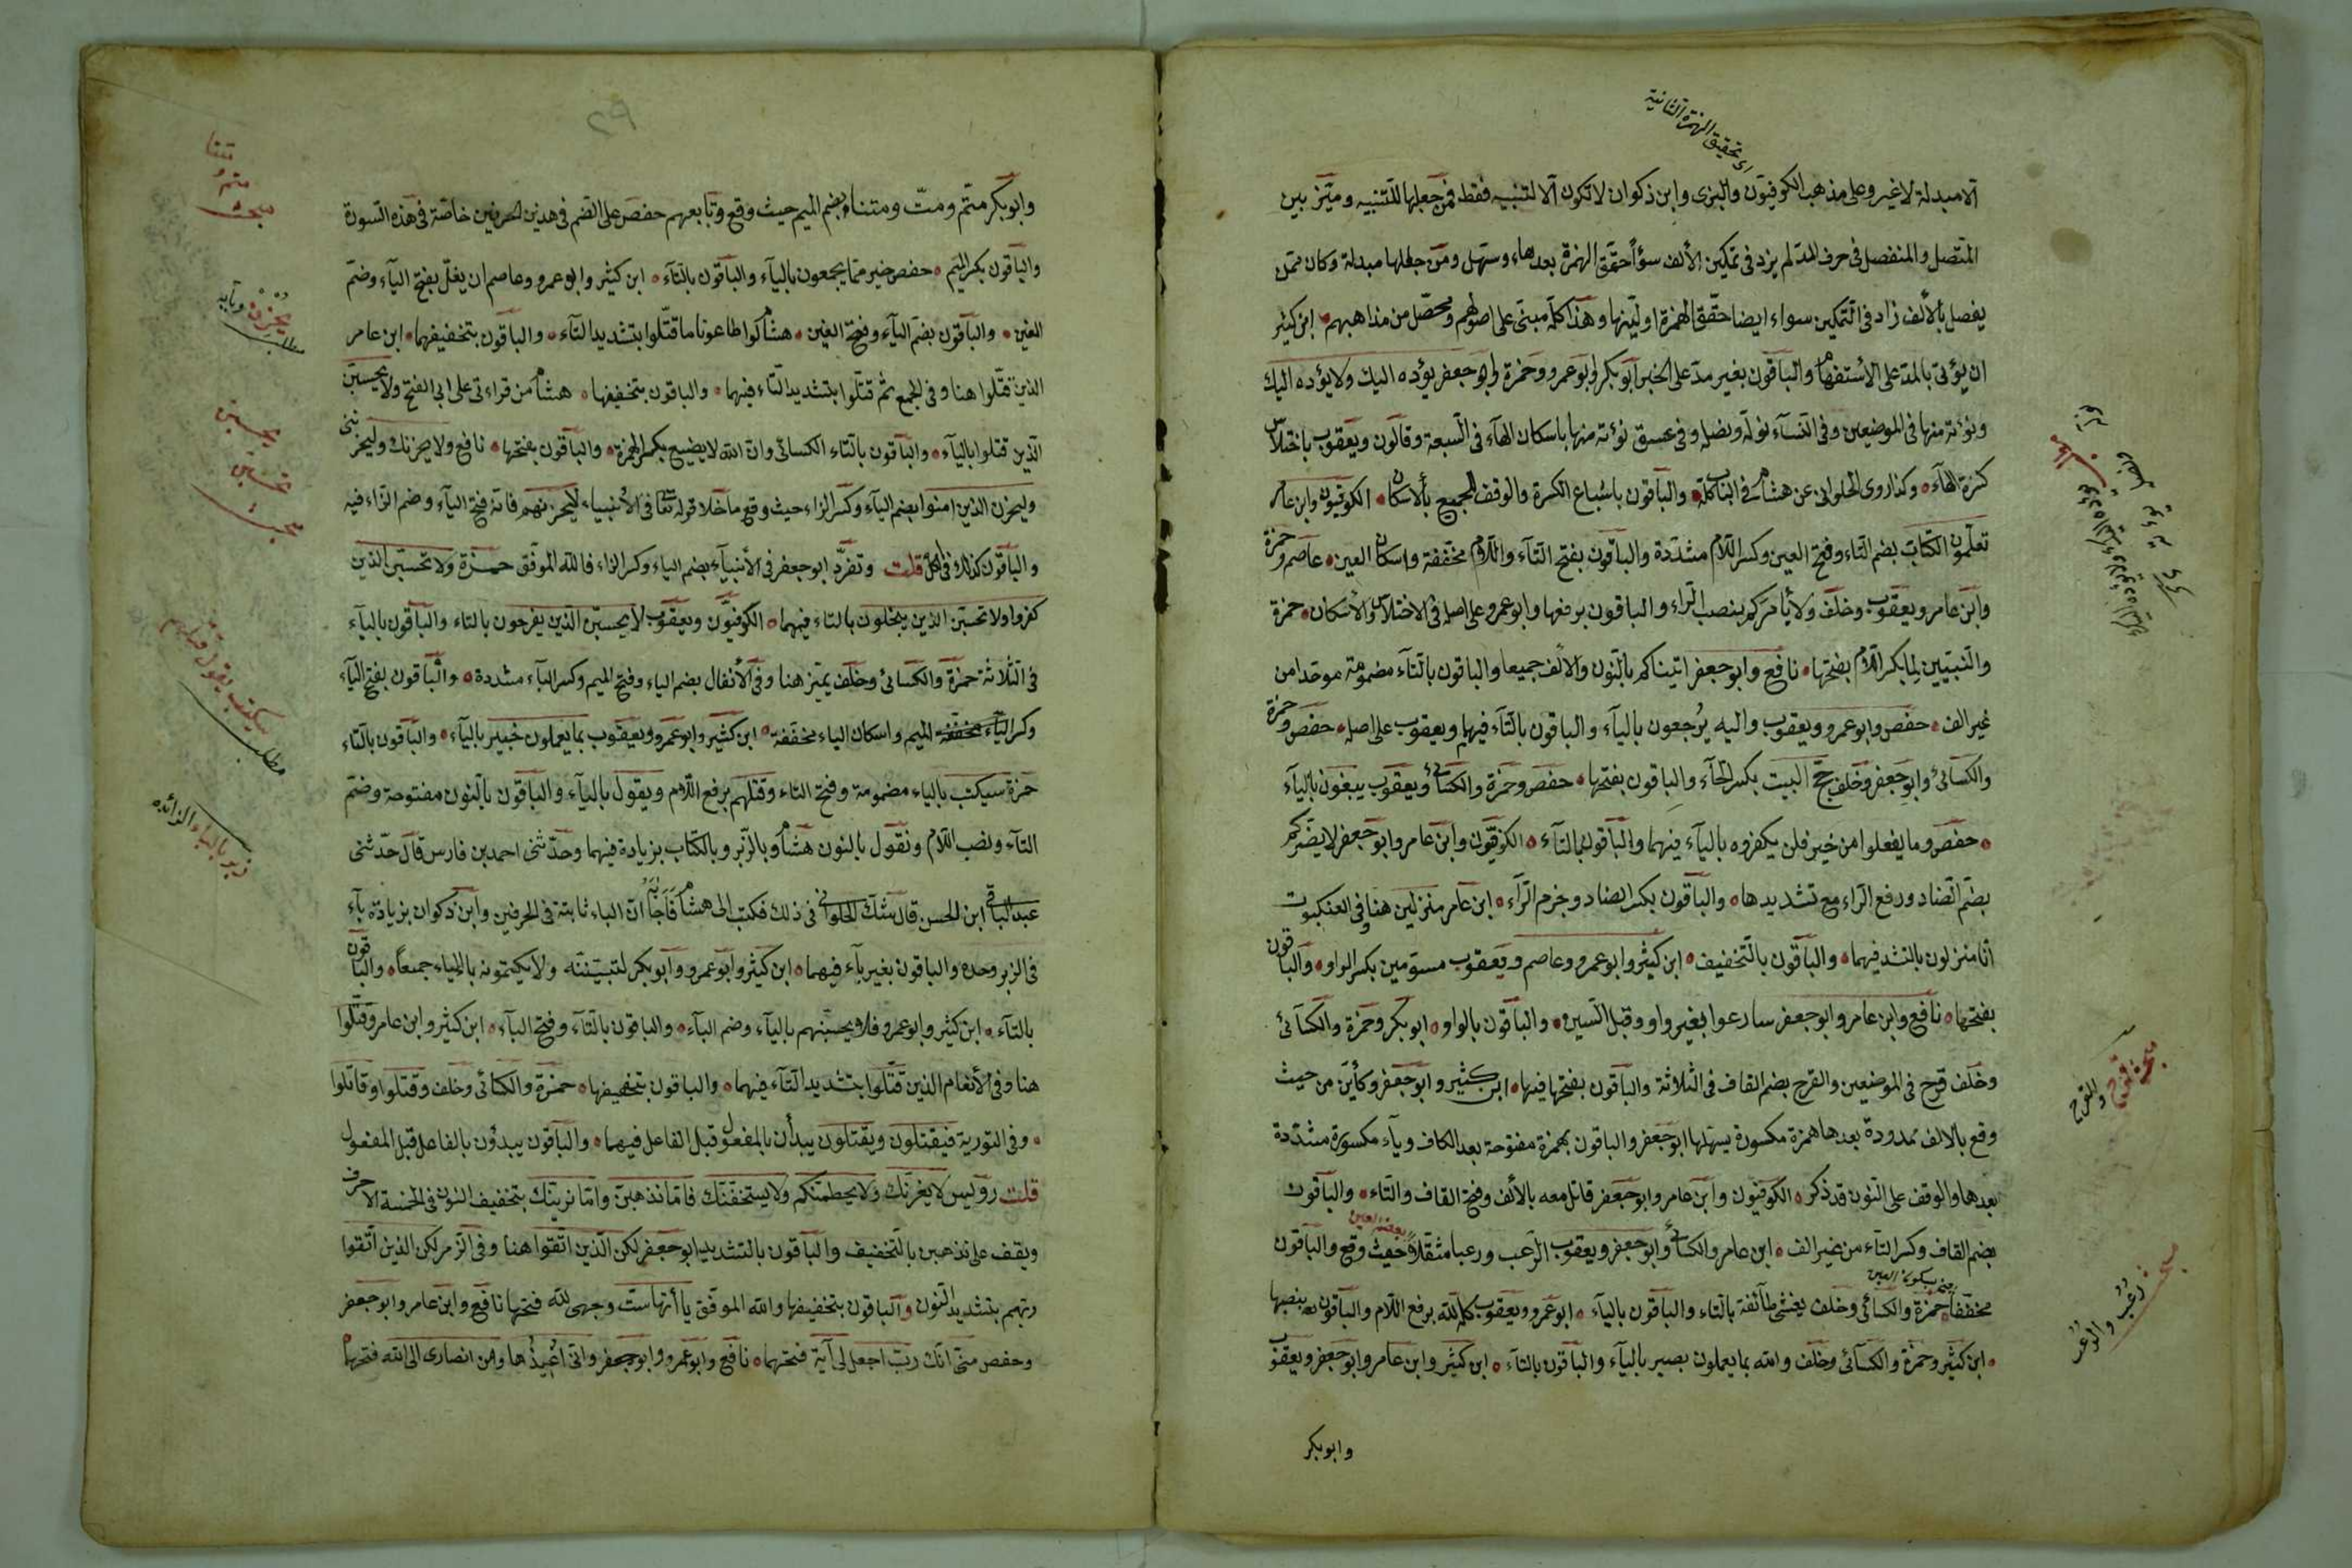 الا مبدلة لا غير وعلى مذهب الكوفيون والبزى وابن ذكوان لا تكون الا لتنبيه فقط فمن جعلها للتنبيه وميّز بين
المتّصل والمنفصل فى حرف المد لم يزد فى تمكين الألف سوأً حقّق الهمزة بعدهاء وسهل ومن جعلها مبدلة وكان ممن
يفصل بالألف زاد فى التمكين سواء ايضا حقّق الهمزة او ليّنها وهذا كلّه مبنى على اصولهم ومحصّل من مذاهبهم ابن كثير
ان يؤتى بالمدّ على الاستفهام والباقون بغير مدّ على الخبر ابو بكر وابو عمرو وحمزة وابو جعفر يؤده اليك ولا يؤده اليك
ونؤته منها فى الموضعين وفى النسآء نولّه ونصله وفى عسق نؤته منها باسكان الهآء فى السبعة وقالون ويعقوب باختلاس
كسرة الهآء وكذا روى الحلوانى عن هشام فى الباب كلّه والباقون باشباع الكسرة والوقف للجميع بالاسكان الكوفيون وابن عامر
تعلّمون الكتاب بضم التاء وفتح العين وكسر اللام مشدّدة والباقون بفتح التآء واللام مخففة واسكان العين عاصم وحمزة
وابن عامر ويعقوب وخلف ولا يأمركم بنصب الراء والباقون برفعها وابو عمرو على اصله فى الاختلاس والأسكان حمزة
والنبيّين لما بكسر اللام والباقون بفتحها نافع وابو جعفر اتيناكم بالنون والالف جميعا والباقون بالتآء مضمومة موحدا من
غير الف حفص وابو عمرو ويعقوب واليه يُرجعون بالياء والباقون بالتآء فيهما ويعقوب على اصله حفص وحمزة
والكسائى وابو جعفر وخلف حجّ البيت بكسر الحآء والباقون بفتحها حفص وحمزة والكسائى ويعقوب يبغون بالياء
حفص وما يفعلوا من خير فلن يكفروه باليآء فيهما والباقون بالتآء الكوفيّون وابن عامر وابو جعفر لا يضركم
بضم الضاد ورفع الراء مع تشديدها والباقون بكسر الضاد وجزم الراء ابن عامر منزلين هنا وفى العنكبوت
انا منزلون بالتشديد فيهما والباقون بالتخفيف ابن كثير وابو عمرو وعاصم ويعقوب مسومين بكسر الواو والباقون
بفتحها نافع وابن عامر وابو جعفر سارعوا بغير واو وقبل السين والباقون بالواو ابو بكر وحمزة والكسائى
وخلف قرح فى الموضعين والقرح بضم القاف فى الثلاثة والباقون بفتحها فيها ابن كثير وابو جعفر وكأين من حيث
وقع بالالف ممدودة بعدها همزة مكسورة يسهلها ابو جعفر والباقون بهمزة مفتوحة بعد الكاف ويآء مكسورة مشدّدة
بعدها والوقف على النون قد ذكر الكوفيون وابن عامر وابو جعفر قاتل معه بالألف وفتح القاف والتاء والباقون
بضم القاف وكسر التاء من غير الف ابن عامر والكسائى وابو جعفر ويعقوب الرعب ورعبا مثقلا حيث وقع والباقون
مخففا حمزة والكسائى وخلف يغشى طآئفة بالتاء والباقون باليآء ابو عمرو ويعقوب كله لله برفع اللام والباقون بنصبها
ابن كثير وحمزة والكسآئى وخلف والله بما يعملون بصير باليآء والباقون بالتآء ابن كثير وابن عامر وابو جعفر ويعقوب
وابو بكر
اى تحقيق الهمزة الثانية
قرح والقرح
رعب والرعب
وابو بكر متّم ومتّ ومتنا بضم الميم حيث وقع وتابعهم حفص على الضم فى هذين الحرفين خاصّة فى هذه السورة
والباقون بكسر الميم حفص خير ممّا يجمعون باليآء والباقون بالتآء ابن كثير وابو عمرو وعاصم ان يغلّ بفتح اليآء وضم
الغين والباقون بضم اليآء وفتح الغين هشام لو اطاعونا ما قتّلوا بتشديد التآء والباقون بتخفيفها ابن عامر
الذين قتّلوا هنا وفى الحج ثم قتلوا بتشديد التاء فيهما والباقون بتخفيفها هشام من قراءتى على ابى الفتح ولا يحسبنّ
الذين قتلوا باليآء والباقون بالتاء الكسائى وان الله لا يضيع بكسر الهمزة والباقون بفتحها نافع ولا يحزنك وليحزننى
وليحزن الذين امنوا بضم اليآء وكسر الزاء حيث وقع ما خلا قوله تعا فى الأنبياء لا يحزنهم فانه فتح اليآء وضم الزاء فيه
والباقون كذلك فى الكل قلت وتفرّد ابو جعفر فى الأنبيآء بضم الياء وكسر الزاء فالله الموفق حمزة ولا تحسبن الذين
كفروا ولا تحسبن الذين يبخلون بالتاء فيهما الكوفيّون ويعقوب لا يحسبن الذين يفرحون بالتاء والباقون باليآء
فى الثلاثة حمزة والكسائى وخلف يميّز هنا وفى الأنفال بضم الياء وفتح الميم وكسر اليآء مشددة والباقون بفتح اليآء
وكسر الميم واسكان الياء مخففة ابن كثير وابو عمرو ويعقوب بما يعملون خبير باليآء والباقون بالتاء
حمزة سيكتب بالياء مضمومة وفتح التاء وقتلهم برفع اللام ويقول باليآء والباقون بالنون مفتوحة وضم
التآء ونصب اللام ونقول بالنون هشام وبالزبر وبالكتاب بزيادة فيهما وحدّثنى احمد بن فارس قال حدّثنى
عبد الباقى ابن الحسن قال شك الحلوانى فى ذلك فكتب الى هشام فاجابه ان الباء ثابتة فى الحرفين وابن ذكوان بزيادة بآء
فى الزبر وحده والباقون بغير بآء فيهما ابن كثير وابو عمرو وابو بكر لتبيننه ولا يكتمونه بالياء جميعاً والباقون
بالتآء ابن كثير وابو عمرو فلا يحسبنهم باليآء وضم البآء والباقون بالتآء وفتح البآء ابن كثير وابن عامر وقتّلوا
هنا وفى الأنعام الذين قتّلوا بتشديد التآء فيهما والباقون بتخفيفها حمزة والكسائى وخلف وقتلوا وقاتلوا
وفى التورية فيقتلون ويقتلون يبدأن بالمفعول قبل الفاعل فيهما والباقون يبدؤن بالفاعل قبل المفعول
قلت رويس لا يغرنّك ولا يحطمنكم ولا يستخفنّك فاما نذهبنّ واما نرينّك بتخفيف النون فى الخمسة الاحرف
ويقف على نذهبن بالتخفيف والباقون بالتشديد ابو جعفر لكن الذين اتقوا هنا وفى الزمر لكن الذين اتقوا
ربهم بتشديد النون والباقون بتخفيفها والله الموفق ياأتها ست وجهى لله فتحها نافع وابن عامر وابو جعفر
وحفص منى انك ربّ اجعل لى آية فتحهما نافع وابو عمرو وابو جعفر وانى اعيذها ومن انصارى الى الله فتحها